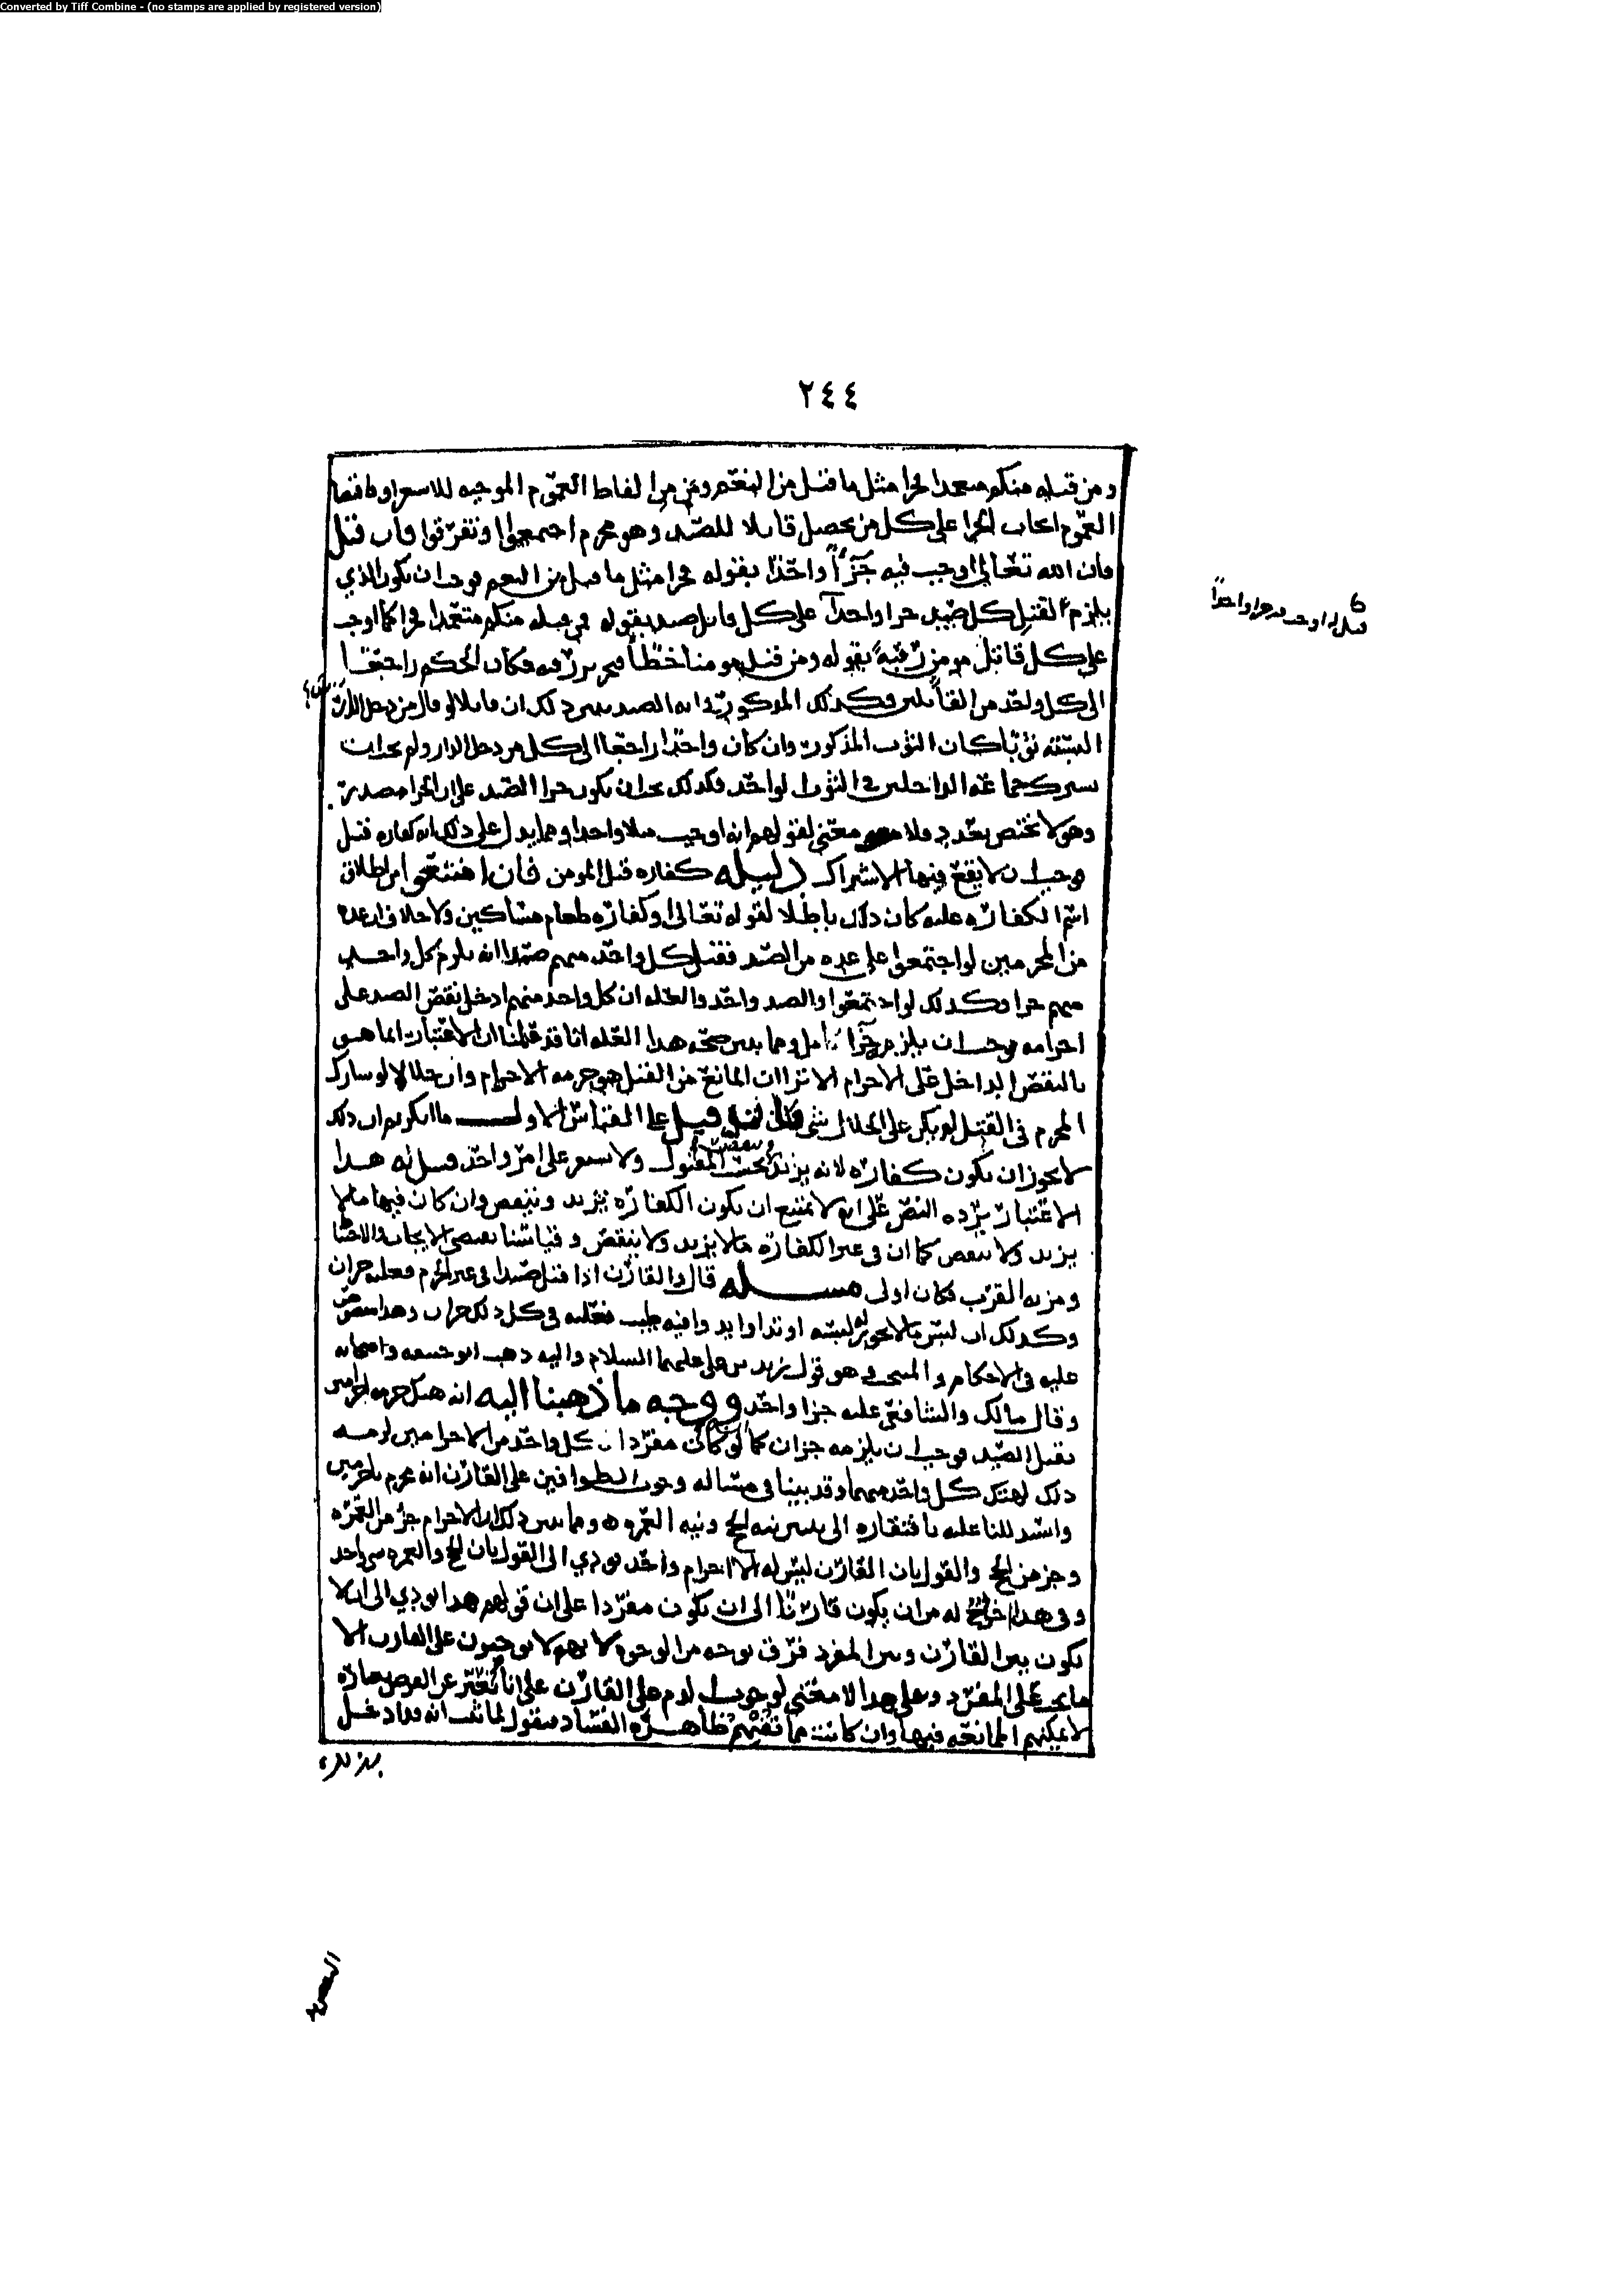 Converted by Tiff Combine - (no stamps are applied by registered version)
٢٤٤
ومن قتله منكم متعمدا فجزا مثل ما قتل من النعم ومن من الفاظ العموم الموجبه للاستغراق
العموم ايجاب الجزا على كل من يحصل قاتلا للصيد وهو محرم اجتمعوا او تفرقوا فان قيل
فان الله تعالى اوجب فيه جزآ واحدا بقوله فجزا مثل ما قتل من النعم فوجب ان يكون الذي
يلزم القتل كل صيد جزا واحدا على كل قاتل صيد بقوله فمن قتله منكم متعمدا فجزا كما اوجب
قيل له اوجب جزا واحداً
على كل قاتل مومن رقبة بقوله ومن قتل مومنا خطأ فتحرير رقبه فكان الحكم راجعا
الى كل واحد من القاتلين وكذلك المذكور في ايه الصيد يبين ذلك ان قايلا لو قال من دخل الدار
البسته ثوبا كان الثوب المذكور وان كان واحدا راجعا الى كل من دخل الدار ولم يجب ان
يشترك جماعة الداخلين في الثوب الواحد فكذلك يجب ان يكون جزا الصيد على ان الجزا مصدر
وهو لا يختص بعدد فلا معنى لقولهم انه اوجب مثلا واحدا ومما يدل على ذلك انه كفاره قتل
فوجب ان لا يقع فيها الاشتراك دليله كفاره قتل المومن فان امتنعوا من اطلاق
اسم الكفاره عليه كان ذلك باطلا لقوله تعالى او كفاره طعام مساكين ولا خلاف ان عده
من المحرمين لو اجتمعوا على عده من الصيد فقتل كل واحد منهم صيدا انه يلزم كل واحد
منهم جزا وكذلك لو اجتمعوا والصيد واحد والعله ان كل واحد منهم ادخل نقض الصيد على
احرامه فوجب ان يلزمه جزآ كامل ومما يبين صحه هذا العله انا قد علمنا ان الاعتبار انما هو
بالنقض الداخل على الاحرام الا ترا ان المانع من القتل هو حرمه الاحرام وان حلالا لو شارك
المحرم في القتل لم يكن على الحلال شي فان قيل على القياس الاول ما انكرتم ان ذلك
لا يجوز ان يكون كفاره لانه يزيد وينقص بحسب المقتول ولا يستمر على امر واحد قيل له هذا
الاعتبار يرده النص على انه لا يمتنع ان يكون الكفاره تزيد وتنقص وان كان فيها ما لا
يزيد ولا ينقص كما ان في غير الكفارة ما لا يزيد ولا ينقص وقياسنا يقتضي الايجاب والاحتياط
ومزيه القرب فكان اولى مسـله قال والقارن اذا قتل صيدا في غير الحرم فعليه جزان
وكذلك ان لبس ما لا يجوز له لبسه او تداوا بدوا فيه طيب فعليه في كل ذلك جزان وهذا منصوص
عليه في الاحكام والمنتخب وهو قول زيد بن علي عليهما السلام واليه ذهب ابو حنيفه واصحابه
وقال مالك والشافعي عليه جزا واحد ووجه ما ذهبنا اليه انه هتك حرمه احرامين
بقتل الصيد فوجب ان يلزمه جزان كما لو كان مفردا في كل واحد من الاحرامين لزمه
ذلك لهتك كل واحد منهما وقد بينا في مساله وجوب الطوافين على القارن انه محرم باحرامين
واستدللنا عليه بافتقاره الى نيتين نيه الحج ونيه العمره ومما يبين ذلك ان الاحرام جز من العمره
وجز من الحج والقول بان القارن ليس له الا احرام واحد يودي الى القول بان الحج والعمره شي واحد
وفي هذا اخراج له من ان يكون قارنا الى ان يكون مفردا على ان قولهم هذا يودي الى ان لا
يكون بين القارن وبين المفرد فرق بوجه من الوجوه لانهم لا يوجبون على القارن الا
ما يجب على المفرد وعلى هذا لا معنى لوجوب الدم على القارن على انا نعبر عن الغرض بعبارة
لا يمكنهم الممانعه فيها وان كانت مما نعتهم ظاهره الفساد فنقول لما ثبت انه قد ادخل